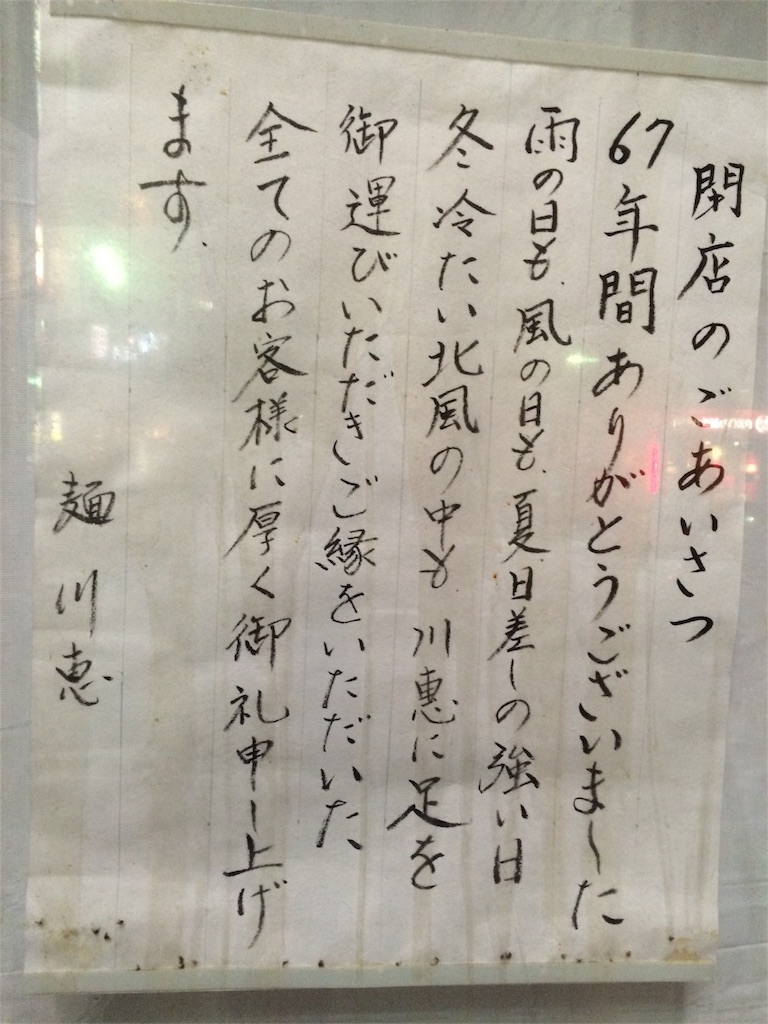 閉店のごあいさつ
67年間ありがとうございました
雨の日も、風の日も、夏、日差しの強い日
冬、冷たい北風の中も、川恵に足を
御運びいただきご縁をいただいた
全てのお客様に厚く御礼申し上げ
ます、
麺川恵